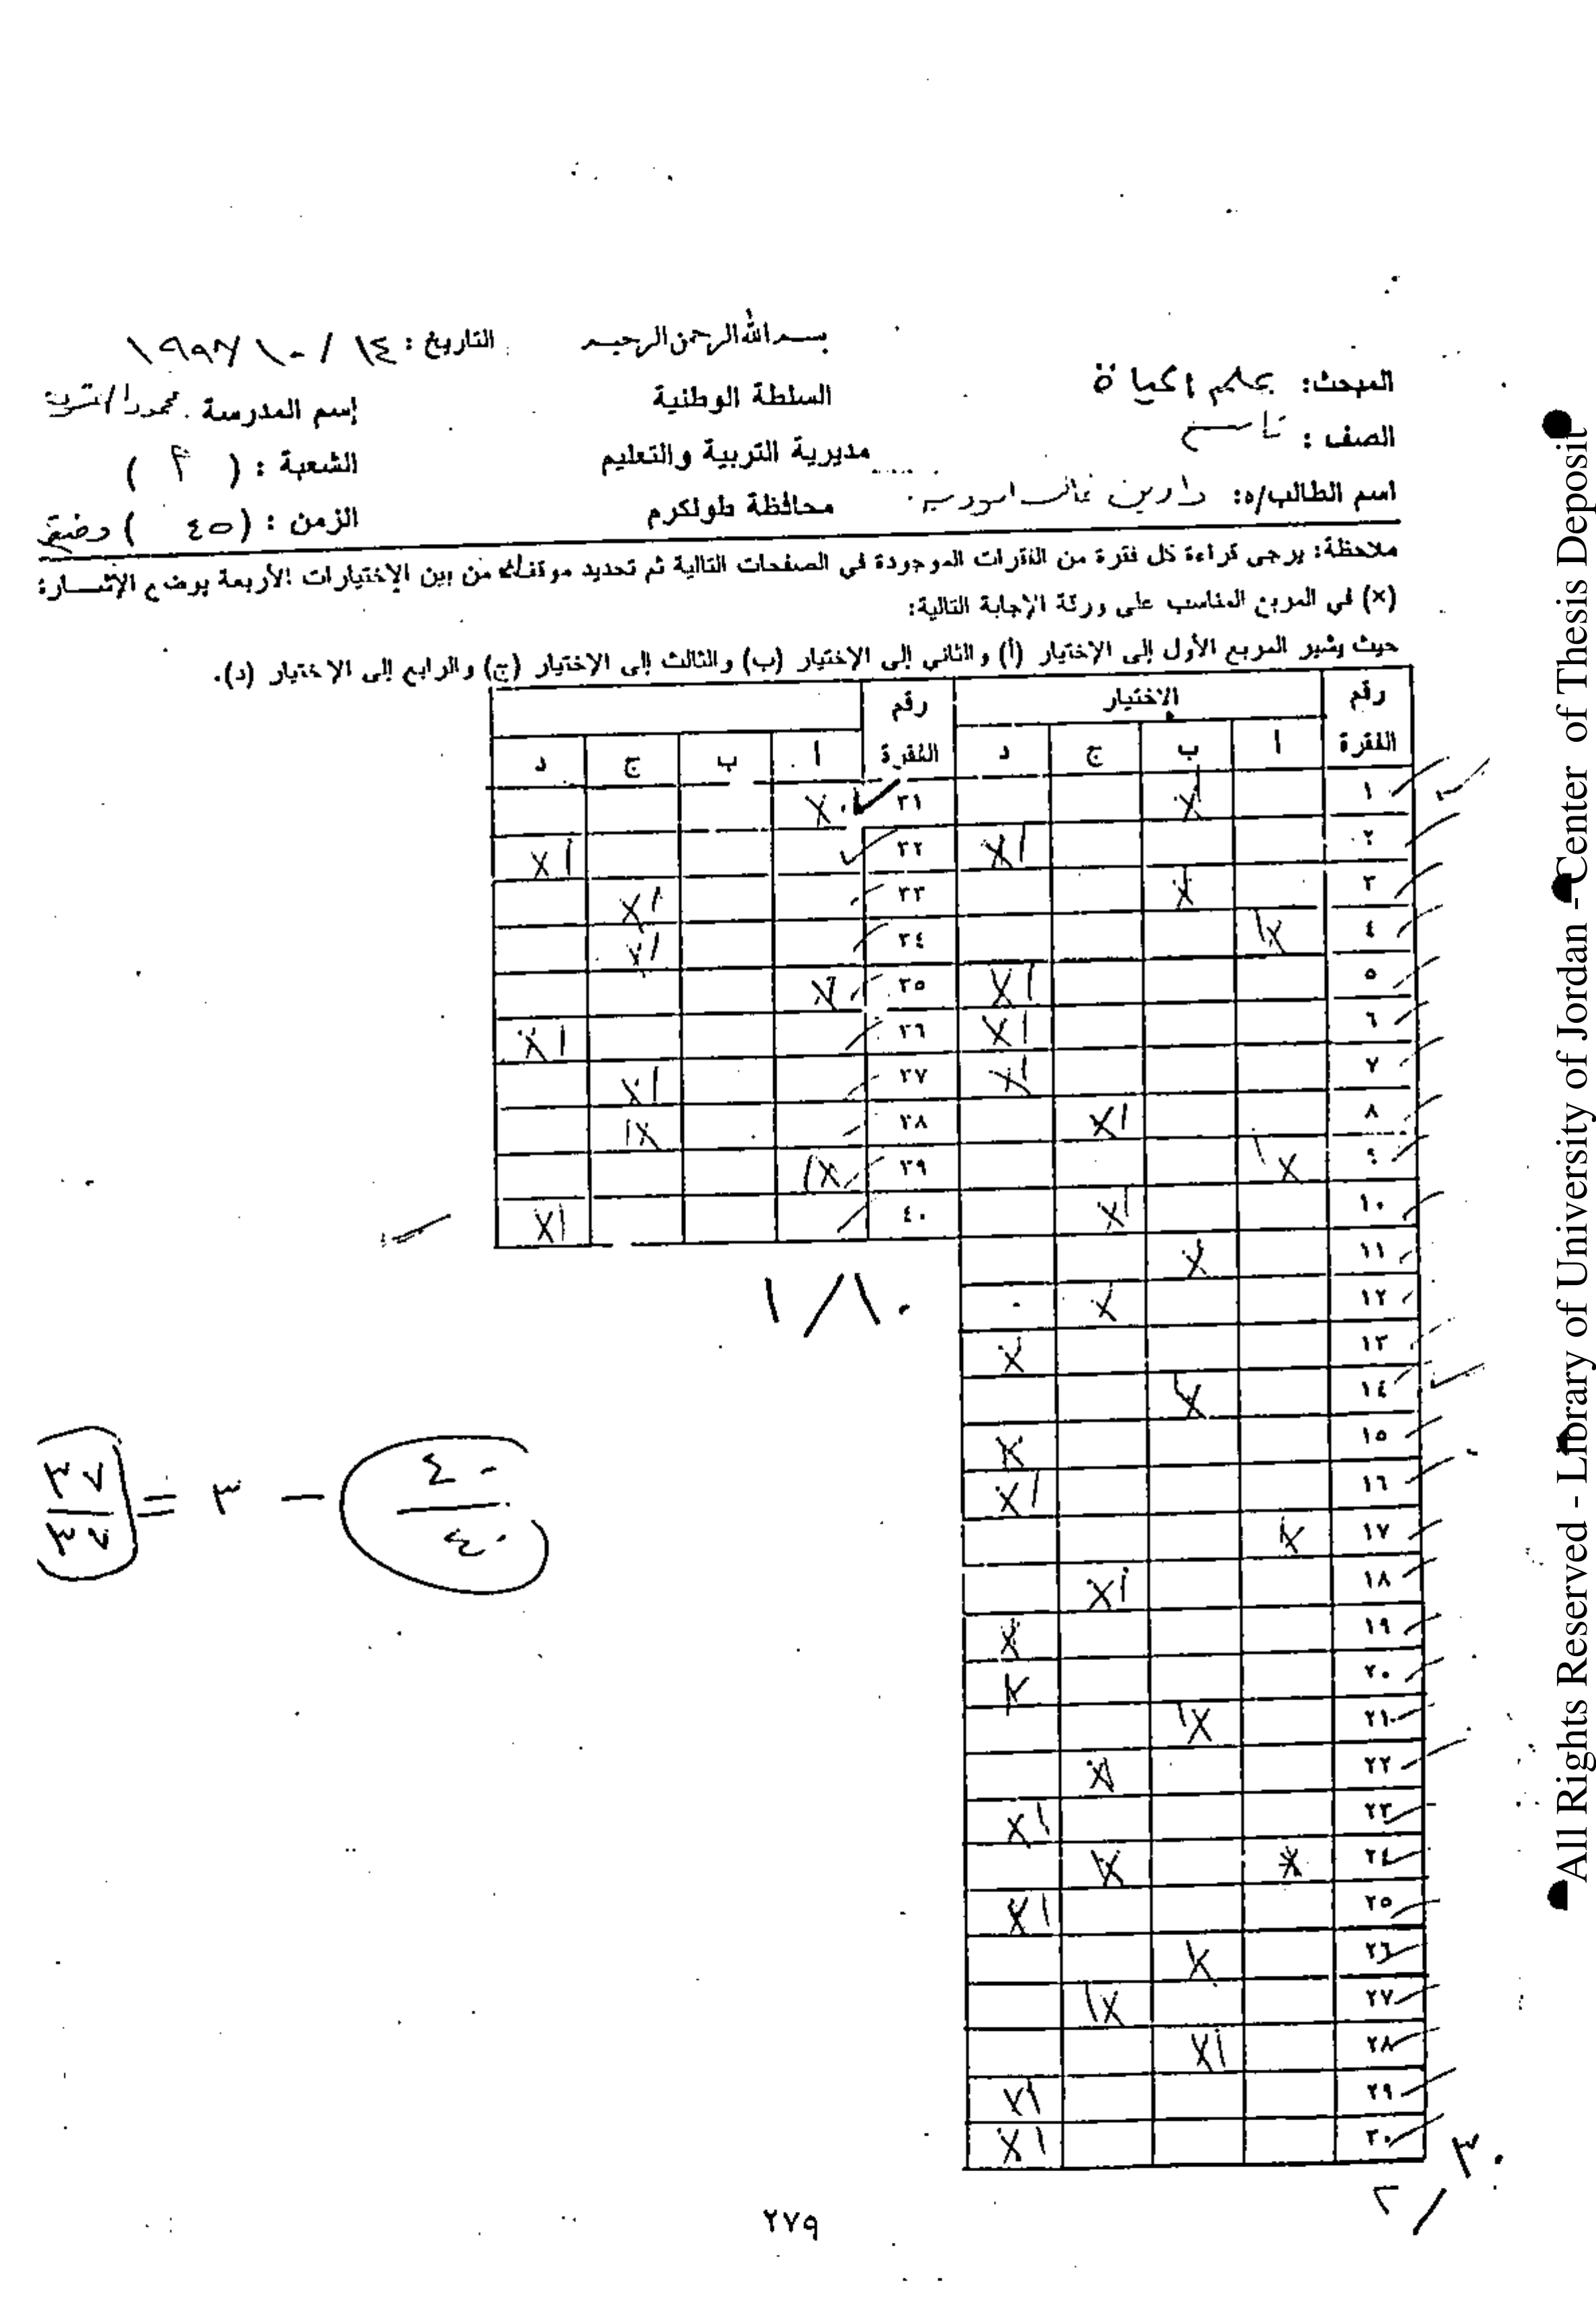 بسم الله الرحمن الرحيم
التاريخ : ١٤ / ١٠ / ١٩٩٧
المبحث: علم الحياة
السلطة الوطنية
إسم المدرسة
الصف : تاسع
مديرية التربية والتعليم
الشعبة : ( أ )
اسم الطالب/ه: دارين
محافظة طولكرم
الزمن : ( ٤٥ ) دقيقة
ملاحظة: يرجى قراءة كل فقرة من الفقرات الموجودة في الصفحات التالية ثم تحديد من بين الإختيارات الأربعة بوضع الإشارة
(×) في المربع المناسب على ورقة الإجابة التالية:
حيث يشير المربع الأول إلى الإختيار (أ) والثاني إلى الإختيار (ب) والثالث إلى الإختيار (ج) والرابع إلى الإختيار (د).
رقم الفقرة الاختيار رقم الفقرة
ا ب ج د ا ب ج د
١ X ٣١ X
٢ X ٣٢ X
٣ X ٣٣ X
٤ X ٣٤ X
٥ X ٣٥ X
٦ X ٣٦ X
٧ X ٣٧ X
٨ X ٣٨ X
٩ X ٣٩ X
١٠ X ٤٠ X
١١ X
١٢ X
١٣ X
١٤ X
١٥ X
١٦ X
١٧ X
١٨ X
١٩ X
٢٠ X
٢١ X
٢٢ X
٢٣ X
٢٤ X X
٢٥ X
٢٦ X
٢٧ X
٢٨ X
٢٩ X
٣٠ X
١٠/١
٤٠/٤٠ - ٣ = ٣٧/٣٧
٣٠/٢
٢٧٩
All Rights Reserved - Library of University of Jordan - Center of Thesis Deposit